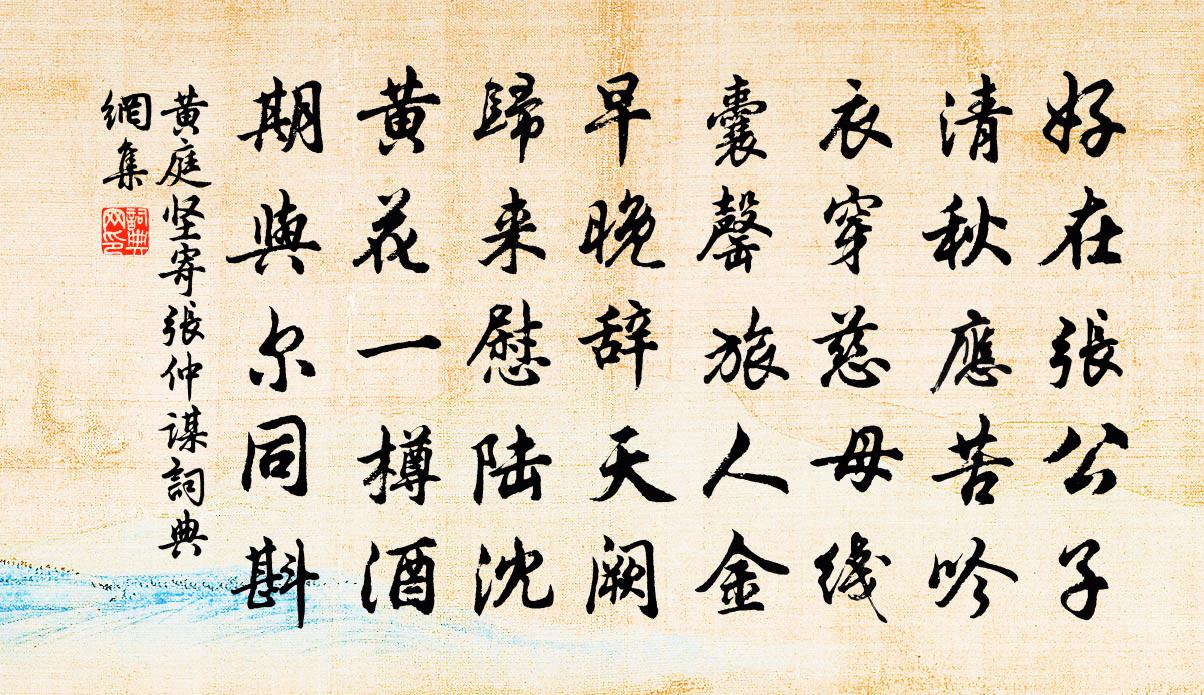 好在張公子
清秋應苦吟
衣穿慈母綫
囊罄旅人金
早晚辞天阙
歸来慰陆沈
黄花一樽酒
期與尔同斟
黄庭坚寄張仲谋詞典
網集
詞典
网印